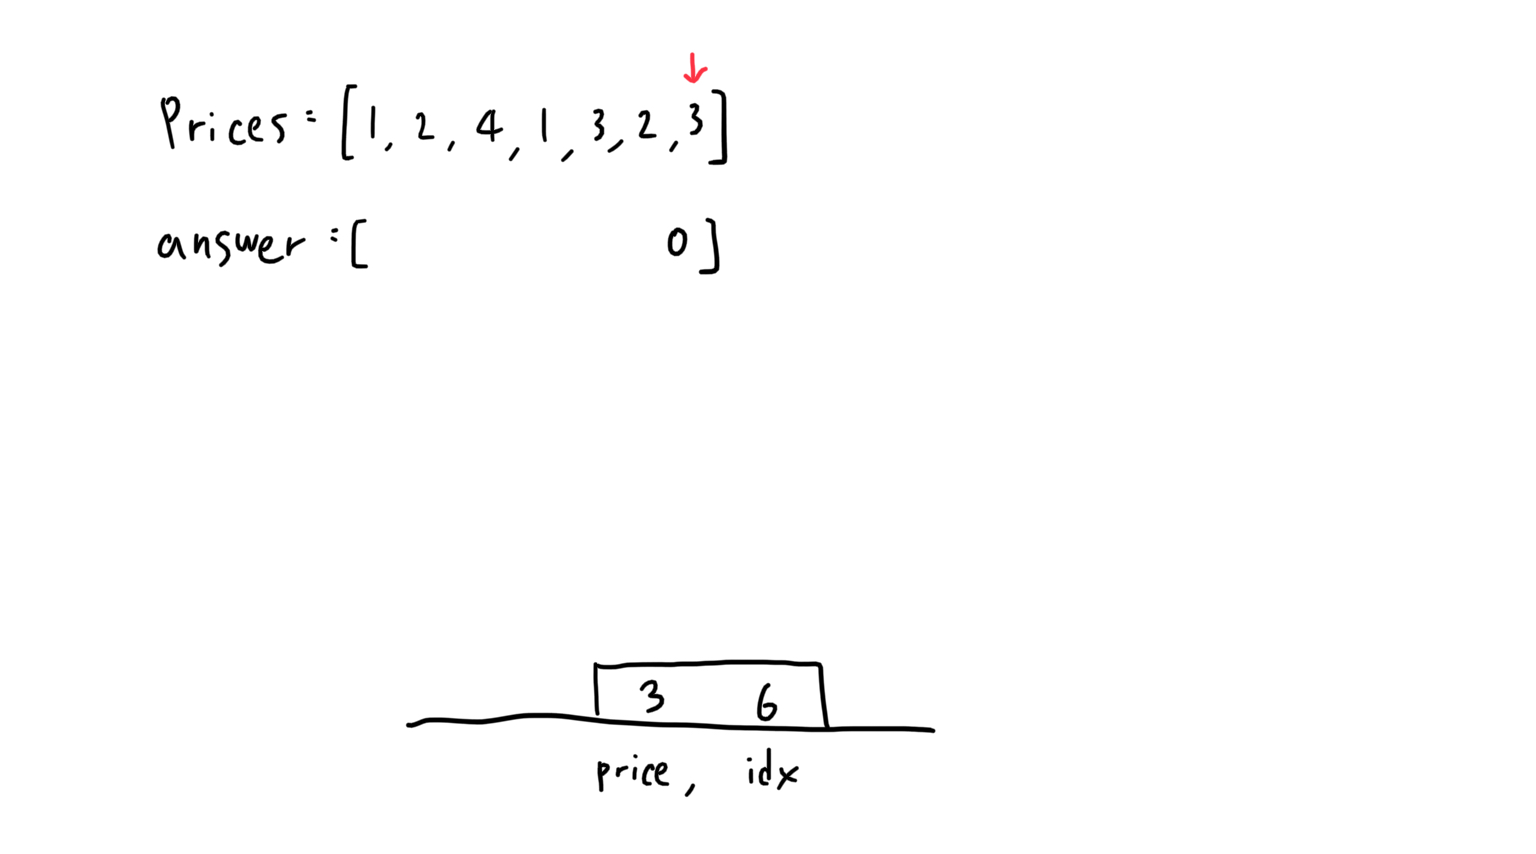 Prices = [1, 2, 4, 1, 3, 2, 3]
answer = [ 0 ]
3 6
price, idx